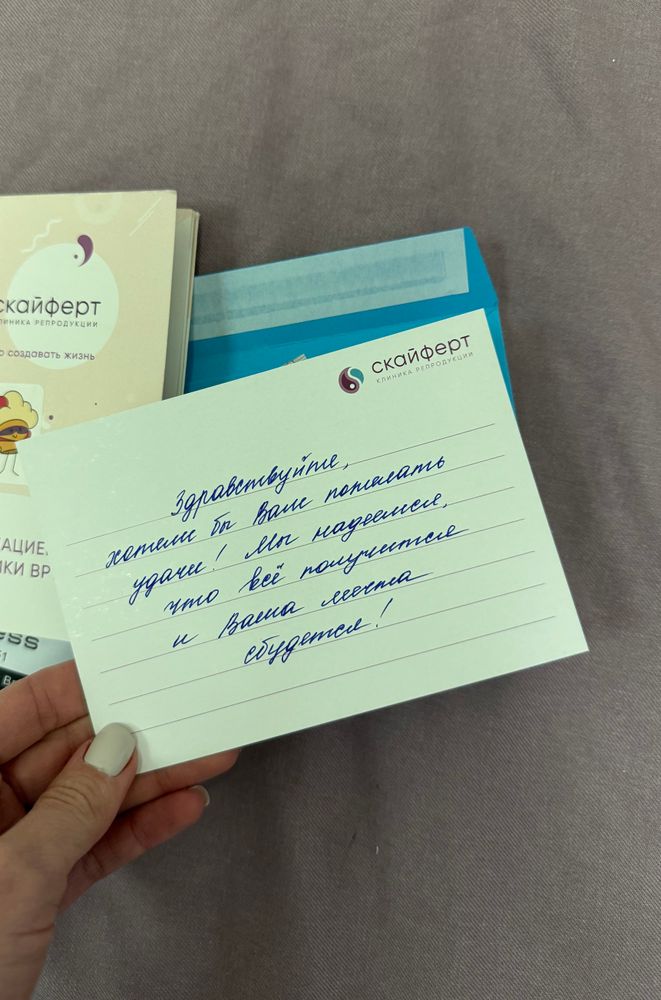 скайферт
КЛИНИКА РЕПРОДУКЦИИ
о создавать жизнь
скайферт
КЛИНИКА РЕПРОДУКЦИИ
Здравствуйте,
хотели бы Вам пожелать
удачи! Мы надеемся,
что всё получится
и Ваша мечта
сбудется!